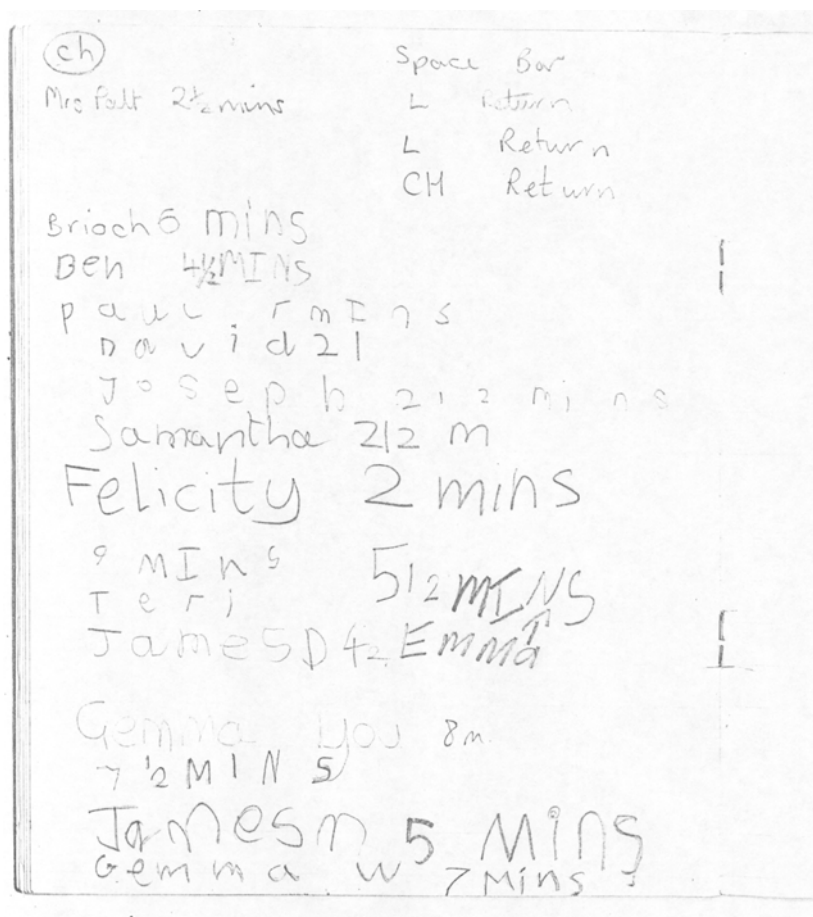 ch
Space Bar
Mrs 2½ mins
L Return
L Return
CH Return
Brioch 6 mins
Ben 4½ MINs
paul mIns
David 21
Joseph 212 mins
Samantha 212 m
Felicity 2 mins
9 mIns
512 MINS
Teri
JamesD 42 EmmaT
Gemma you 8m.
7 ½ MINS
Jamesn 5 Mins
Gemma w 7 Mins